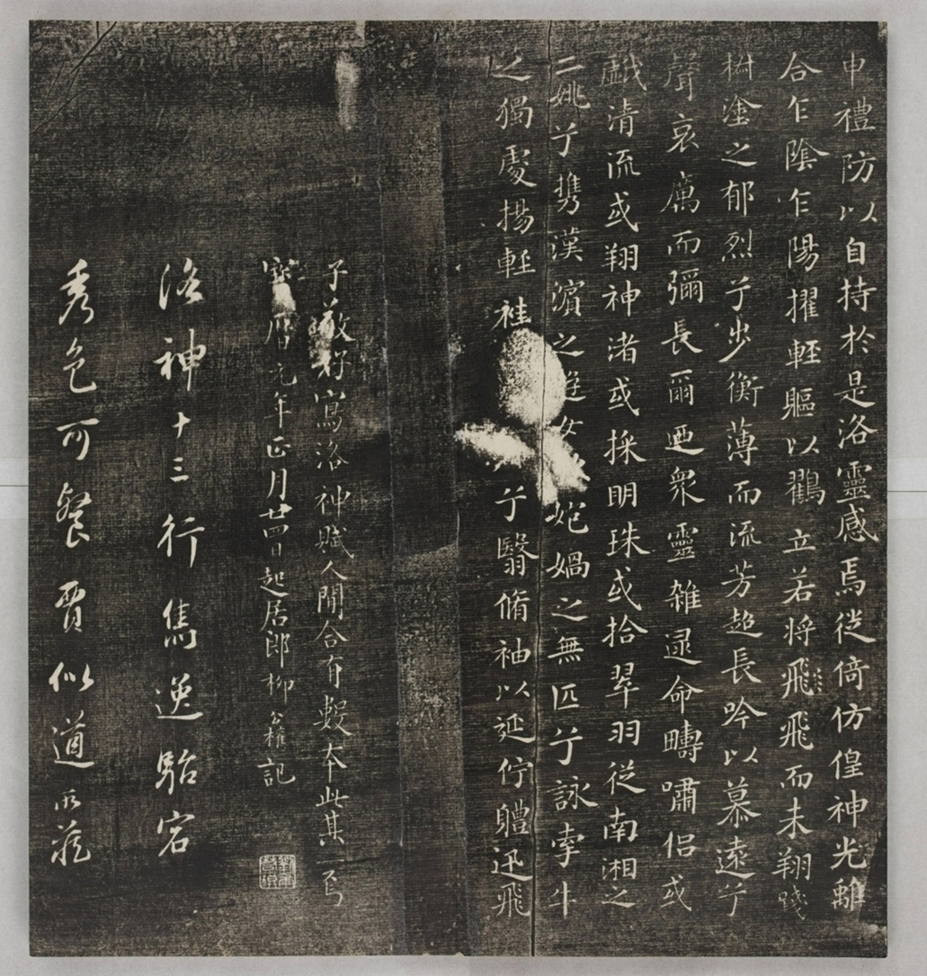 申禮防以自持於是洛靈感焉徙倚仿偟神光離
合乍陰乍陽擢輕軀以鶴立若將飛飛而未翔踐
椒塗之郁烈兮步衡薄而流芳超長吟以慕遠兮
聲哀厲而彌長爾迺衆靈雜遝命疇嘯侶或
戲清流或翔神渚或採明珠或拾翠羽從南湘之
二姚兮攜漢濱之遊女妃媧之無匹兮詠牽牛
之獨處揚輕袿兮翳脩袖以延佇軆迅飛
子敬好寫洛神賦人間合有數本此其一焉
寶曆元年正月廿四日起居郎柳公權記
洛神十三行雋逸駘宕
秀色可餐賈似道所藏